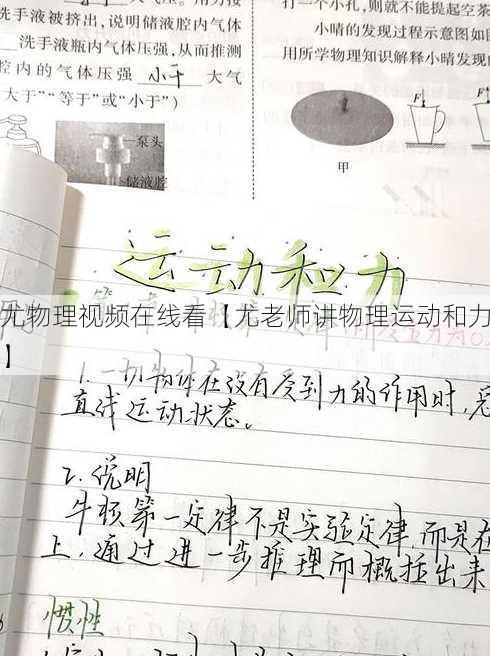 洗手液被挤出，说明储液腔内气体
洗手液瓶内气体压强，从而推测
腔内的气体压强 小于 大气
大于”“等于”或“小于”）
泵头
储液腔
打一个小孔，则就不能提起空茶
小晴的发现过程示意图如图
用所学物理知识解释小晴发现的
甲
F
运动和力
尤物理视频在线看【尤老师讲物理运动和力
】
1. 一切物体在没有受到力的作用时，总
直线运动状态。
2. 说明
牛顿第一定律不是实验定律，而是在
上，通过进一步推理而概括出来
惯性